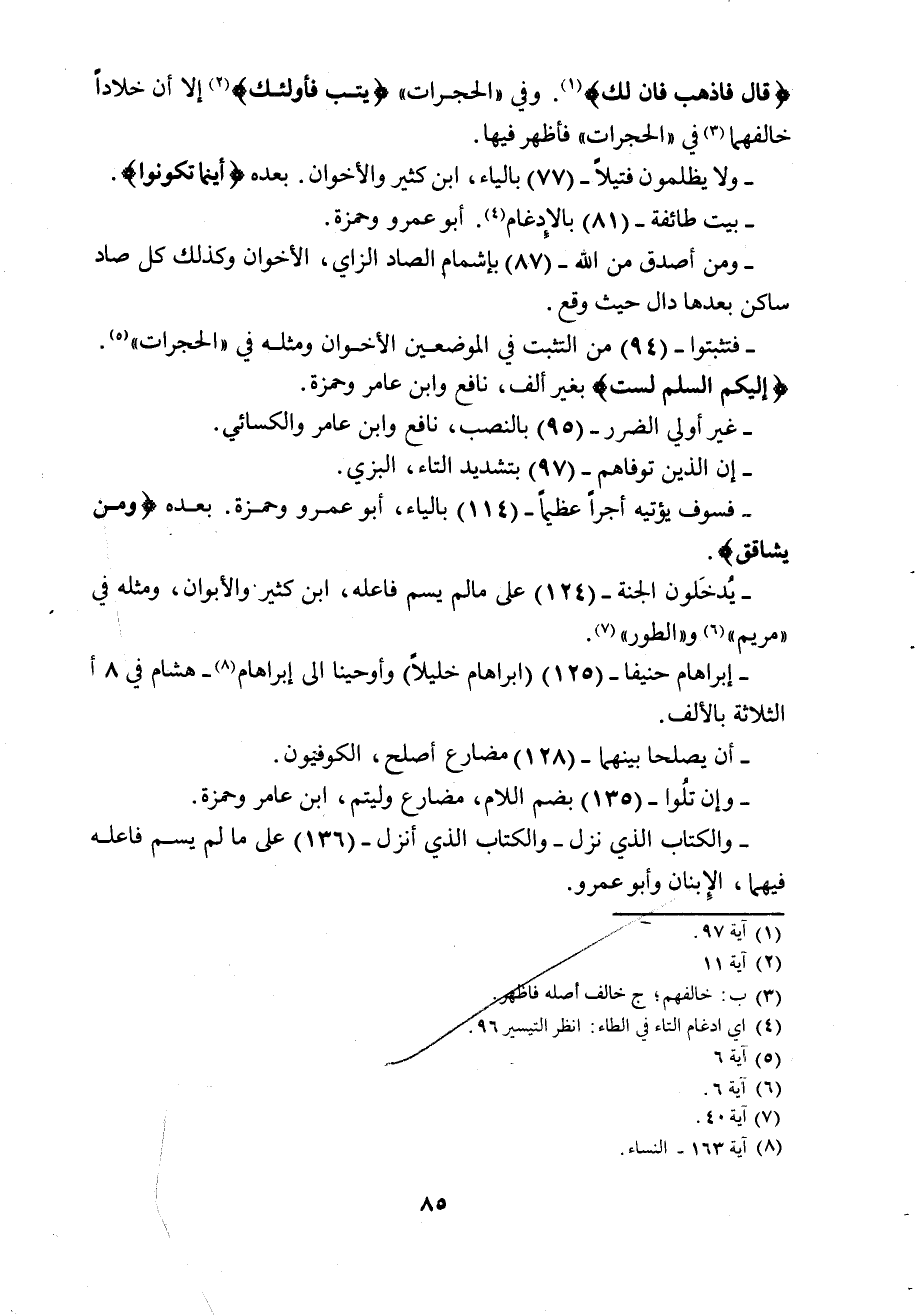 ﴿قال فاذهب فان لك﴾(١). وفي «الحجرات» ﴿يتب فأولئك﴾(٢) إلا أن خلاداً
خالفهما(٣) في «الحجرات» فأظهر فيها.
ـ ولا يظلمون فتيلاً ـ (٧٧) بالياء، ابن كثير والأخوان. بعده ﴿أينما تكونوا﴾.
ـ بيت طائفة ـ (٨١) بالإدغام(٤). أبو عمرو وحمزة.
ـ ومن أصدق من الله ـ (٨٧) بإشمام الصاد الزاي، الأخوان وكذلك كل صاد
ساكن بعدها دال حيث وقع.
ـ فتثبتوا ـ (٩٤) من التثبت في الموضعين الأخوان ومثله في «الحجرات»(٥).
﴿إليكم السلم لست﴾ بغير ألف، نافع وابن عامر وحمزة.
ـ غير أولي الضرر ـ (٩٥) بالنصب، نافع وابن عامر والكسائي.
ـ إن الذين توفاهم ـ (٩٧) بتشديد التاء، البزي.
ـ فسوف يؤتيه أجراً عظيماً ـ (١١٤) بالياء، أبو عمرو وحمزة. بعده ﴿ومن
يشاقق﴾.
ـ يُدخَلون الجنة ـ (١٢٤) على مالم يسم فاعله، ابن كثير والأبوان، ومثله في
«مريم»(٦) و«الطور»(٧).
ـ إبراهام حنيفا ـ (١٢٥) (ابراهام خليلاً) وأوحينا الى إبراهام(٨) ـ هشام في ٨ أ
الثلاثة بالألف.
ـ أن يصلحا بينهما ـ (١٢٨) مضارع أصلح، الكوفيون.
ـ وإن تلُوا ـ (١٣٥) بضم اللام، مضارع وليتم، ابن عامر وحمزة.
ـ والكتاب الذي نزل ـ والكتاب الذي أنزل ـ (١٣٦) على ما لم يسم فاعله
فيهما، الإبنان وأبو عمرو.
(١) آية ٩٧.
(٢) آية ١١
(٣) ب: خالفهم؛ ج خالف أصله فاظهر.
(٤) اي ادغام التاء في الطاء: انظر التيسير ٩٦.
(٥) آية ٦
(٦) آية ٦.
(٧) آية ٤٠.
(٨) آية ١٦٣ ـ النساء.
٨٥